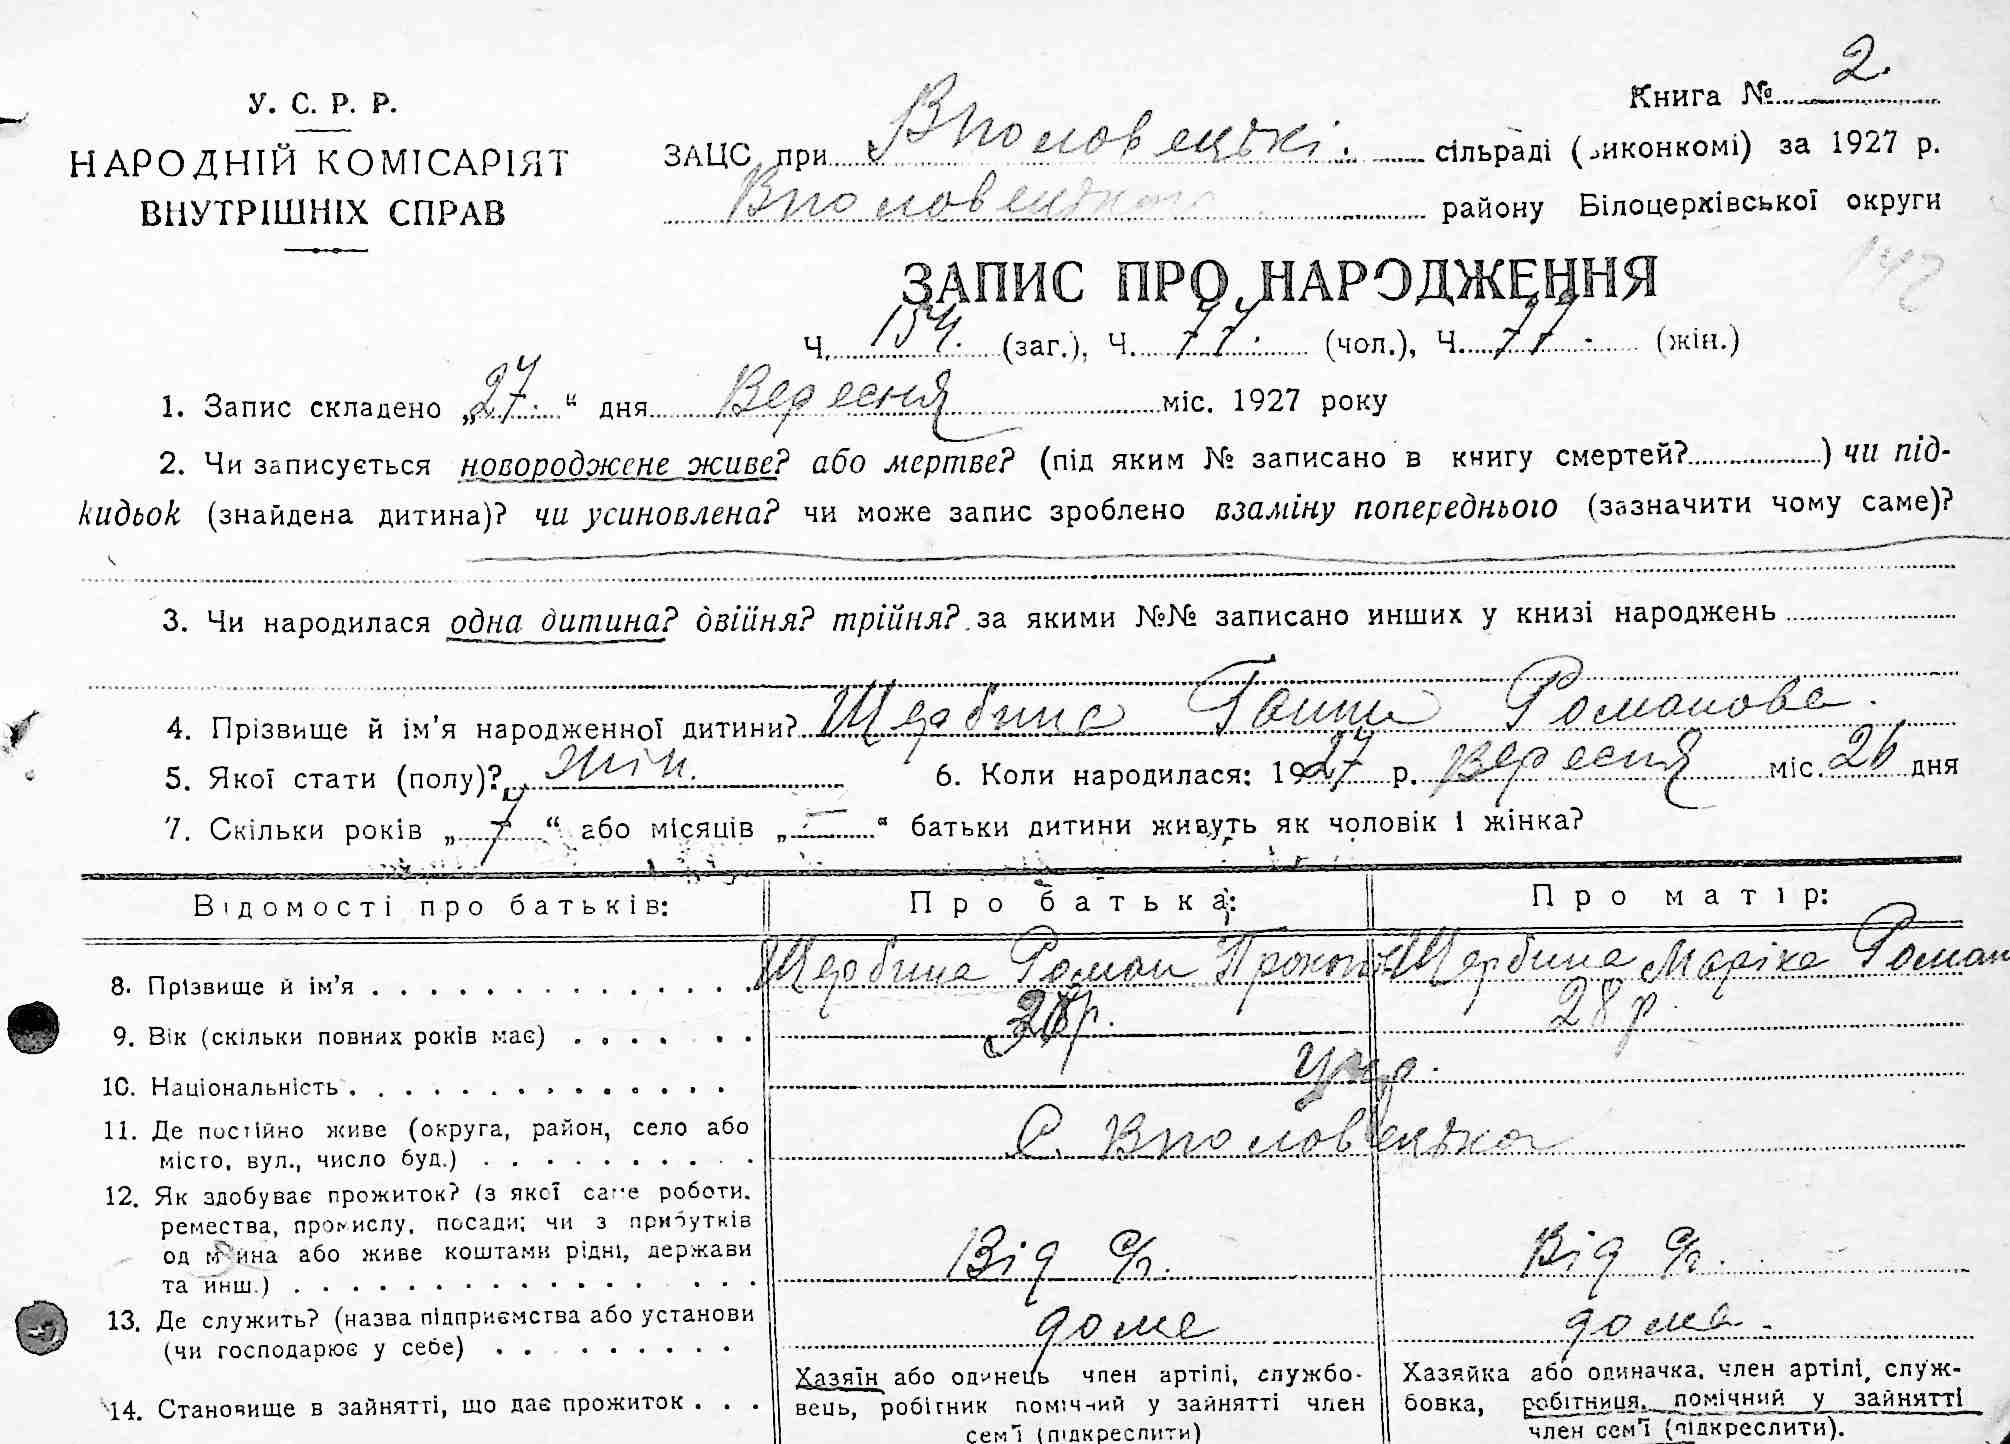 Книга № 2.
У. С. Р. Р.
НАРОДНІЙ КОМІСАРІЯТ
ВНУТРІШНІХ СПРАВ
ЗАЦС при Вполовецькі. сільраді (виконкомі) за 1927 р.
Вполовецького району Білоцерківської округи
142
ЗАПИС ПРО НАРОДЖЕННЯ
Ч. 154. (заг.), Ч. 77. (чол.), Ч. 77. (жін.)
1. Запис складено „27.“ дня Вересня міс. 1927 року
2. Чи записується новороджене живе? або мертве? (під яким № записано в книгу смертей?) чи під-
кидьок (знайдена дитина)? чи усиновлена? чи може запис зроблено взаміну попереднього (зазначити чому саме)?
3. Чи народилася одна дитина? двійня? трійня? за якими №№ записано инших у книзі народжень
4. Прізвище й ім’я народженної дитини? Щербина Ганна Романова.
5. Якої стати (полу)? жін. 6. Коли народилася: 1927 р. Вересня міс. 26 дня
7. Скільки років „7“ або місяців „—“ батьки дитини живуть як чоловік і жінка?
Відомості про батьків: Про батька: Про матір:
8. Прізвище й ім’я Щербина Роман Прокоп Щербина Маріка Роман
9. Вік (скільки повних років має) р. 28 р.
10. Національність укр.
11. Де постійно живе (округа, район, село або
місто, вул., число буд.) С. Вполовецька
12. Як здобуває прожиток? (з якої саме роботи,
ремества, промислу, посади; чи з прибутків
од майна або живе коштами рідні, держави
та инш.) Від с/г. Від с/г.
13. Де служить? (назва підприємства або установи
(чи господарює у себе) дома дома.
14. Становище в зайнятті, що дає прожиток
Хазяїн або одинець член артілі, службо-
вець, робітник помічний у зайнятті член
сем’ї (підкреслити)
Хазяйка або одиначка, член артілі, служ-
бовка, робітниця, помічний у зайнятті
член сем’ї (підкреслити).